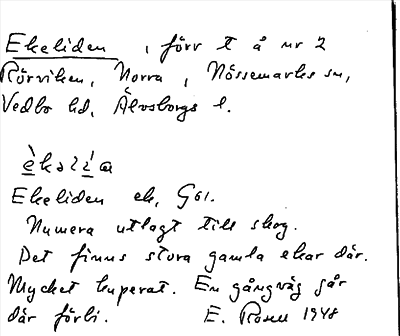 Ekeliden, förr t å nr 2
Rörviken, Norra, Nössemarks sn,
Vedbo hd, Älvsborgs l.
Ekeliden ek. G61.
Numera utlagt till skog.
Det finns stora gamla ekar där.
Mycket kuperat. En gångväg går
där förbi. E. Rosell 1948